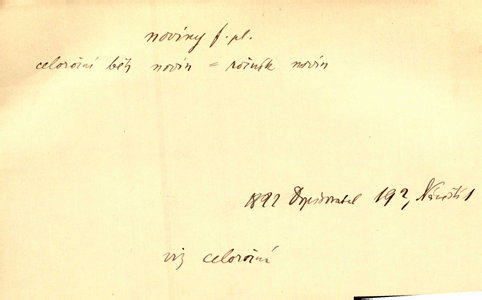 noviny f. pl.
celoroční běh novin = ročník novin
1892 Dopisovatel 192,
viz celoroční